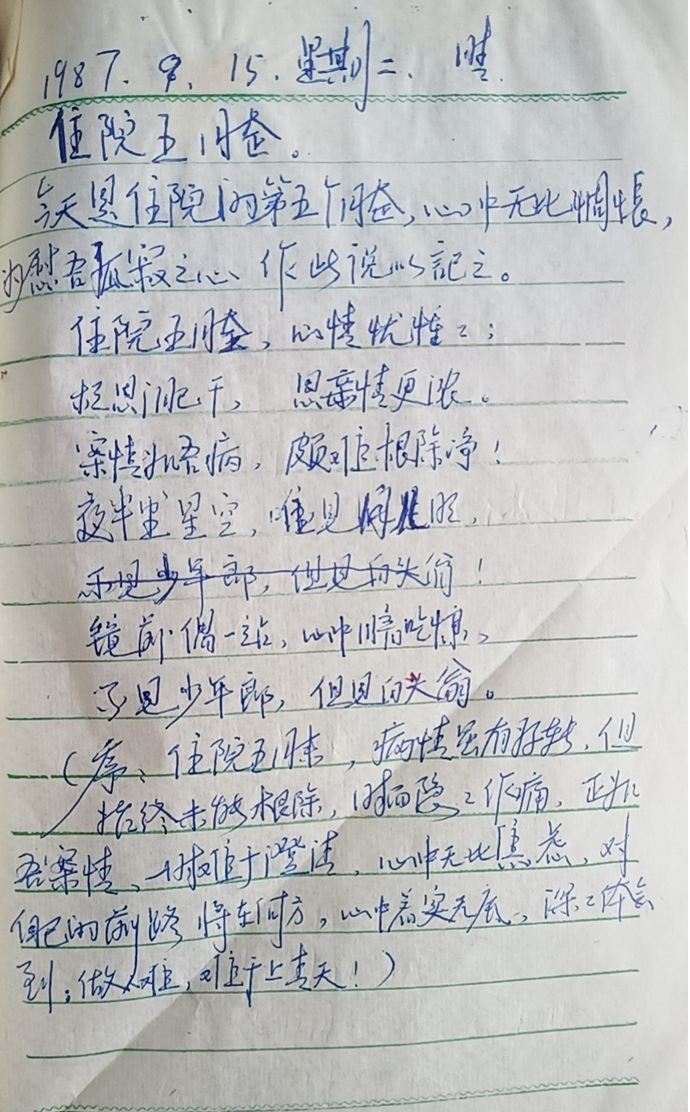 1987. 9. 15. 星期二. 晴.
住院五月整。
今天是住院的第五个月整,心中无比惆怅,
为慰吾孤寂之心 作此说以記之。
住院五月整,心情忧憧々;
枕思 干, 思亲情更浓。
案情如吾病,颇难根除净!
夜半望星空,唯见 明,
不见少年郎,但见白头翁!
镜前偶一站,心中暗吃惊,
不见少年郎,但见白头翁。
(序:住院五月来,病情虽有好转,但
始终未能根除,时而隐々作痛,正如
吾案情,一时难于澄清,心中无比焦虑,对
自己的前路将在何方,心中着实无底,深々体会
到:做人难,难于上青天!)